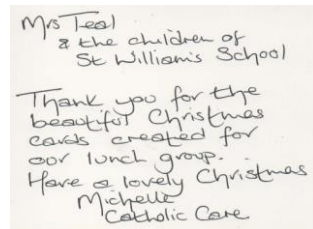 Mrs Teal
& the children of
St William's School
Thank you for the
beautiful Christmas
cards created for
our lunch group.
Have a lovely Christmas
Michelle
Catholic Care